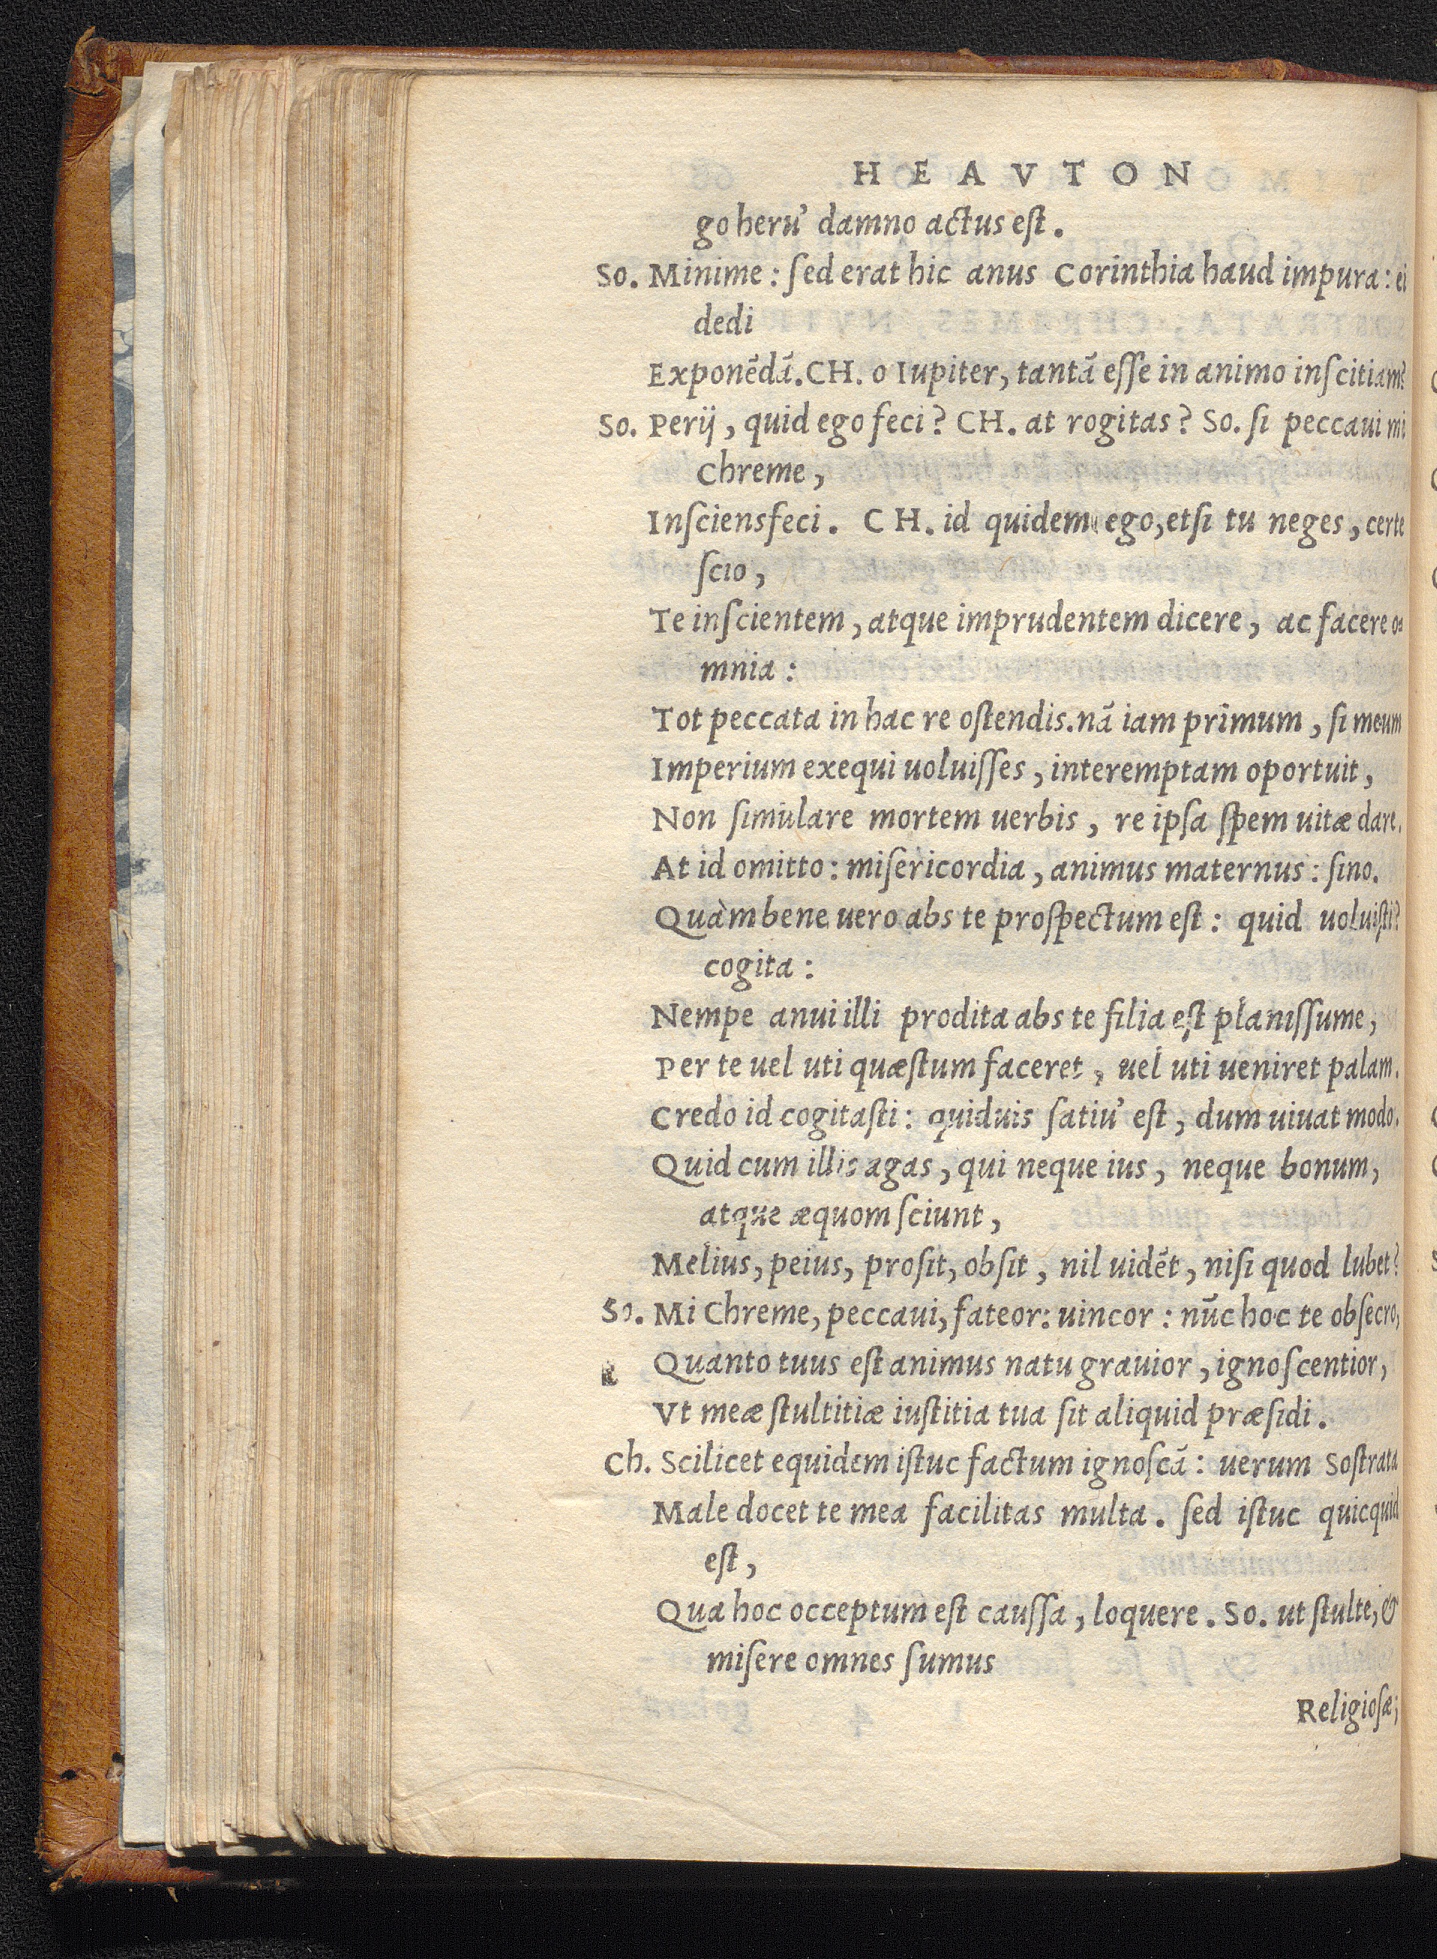 HEAVTON
go heru' damno actus est.
So. Minime: sed erat hic anus Corinthia haud impura: ei
dedi
Exponēdā. CH. o Iupiter, tantā esse in animo inscitiam?
So. Perij, quid ego feci? CH. at rogitas? So. si peccaui mi
Chreme,
Insciens feci. CH. id quidem ego, etsi tu neges, certe
scio,
Te inscientem, atque imprudentem dicere, ac facere o-
mnia:
Tot peccata in hac re ostendis. nā iam primum, si meum
Imperium exequi uoluisses, interemptam oportuit,
Non simulare mortem uerbis, re ipsa spem uitæ dare.
At id omitto: misericordia, animus maternus: sino.
Quàm bene uero abs te prospectum est: quid uoluisti?
cogita:
Nempe anui illi prodita abs te filia est planissume,
Per te uel uti quæstum faceret, uel uti ueniret palam.
Credo id cogitasti: quiduis satiu' est, dum uiuat modo.
Quid cum illis agas, qui neque ius, neque bonum,
atque æquom sciunt,
Melius, peius, prosit, obsit, nil uidēt, nisi quod lubet?
So. Mi Chreme, peccaui, fateor: uincor: nūc hoc te obsecro,
Quanto tuus est animus natu grauior, ignoscentior,
Vt meæ stultitiæ iustitia tua sit aliquid præsidi.
Ch. Scilicet equidem istuc factum ignoscā: uerum Sostrata
Male docet te mea facilitas multa. sed istuc quicquid
est,
Qua hoc occeptum est caussa, loquere. So. ut stulte, &
misere omnes sumus
Religiosæ;